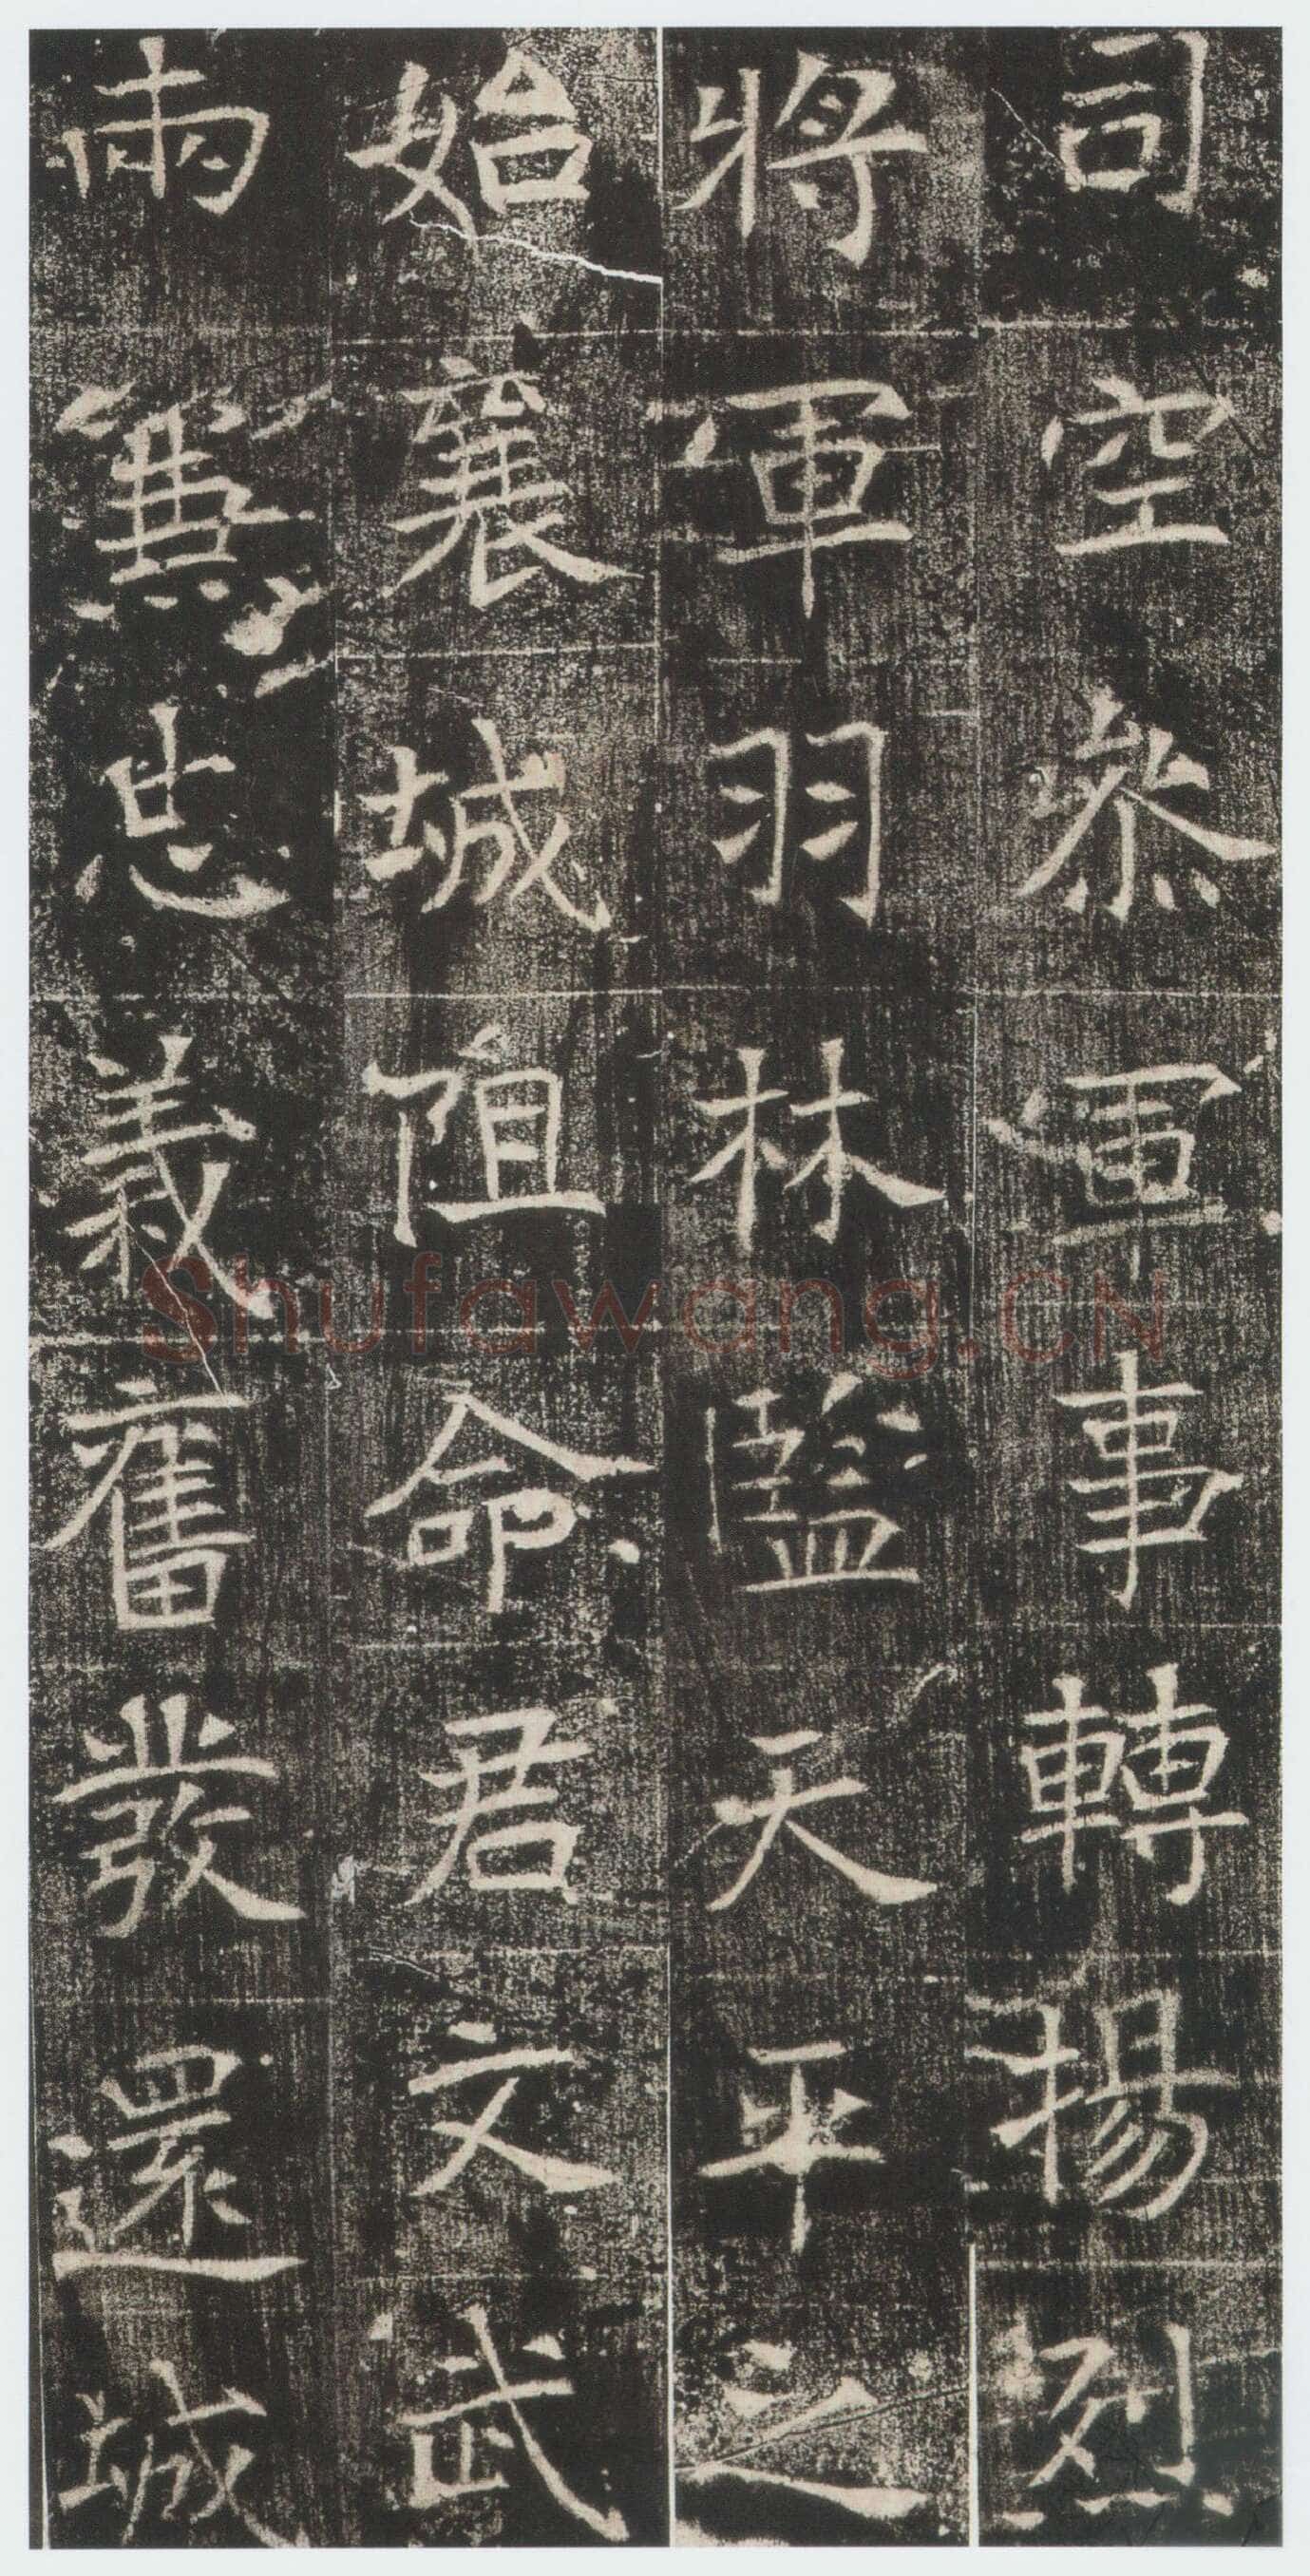 司空叅軍事轉揚烈
將軍羽林監天平之
始襄城阻命君文武
兩兼忠義奮發還城
Shufawang.CN